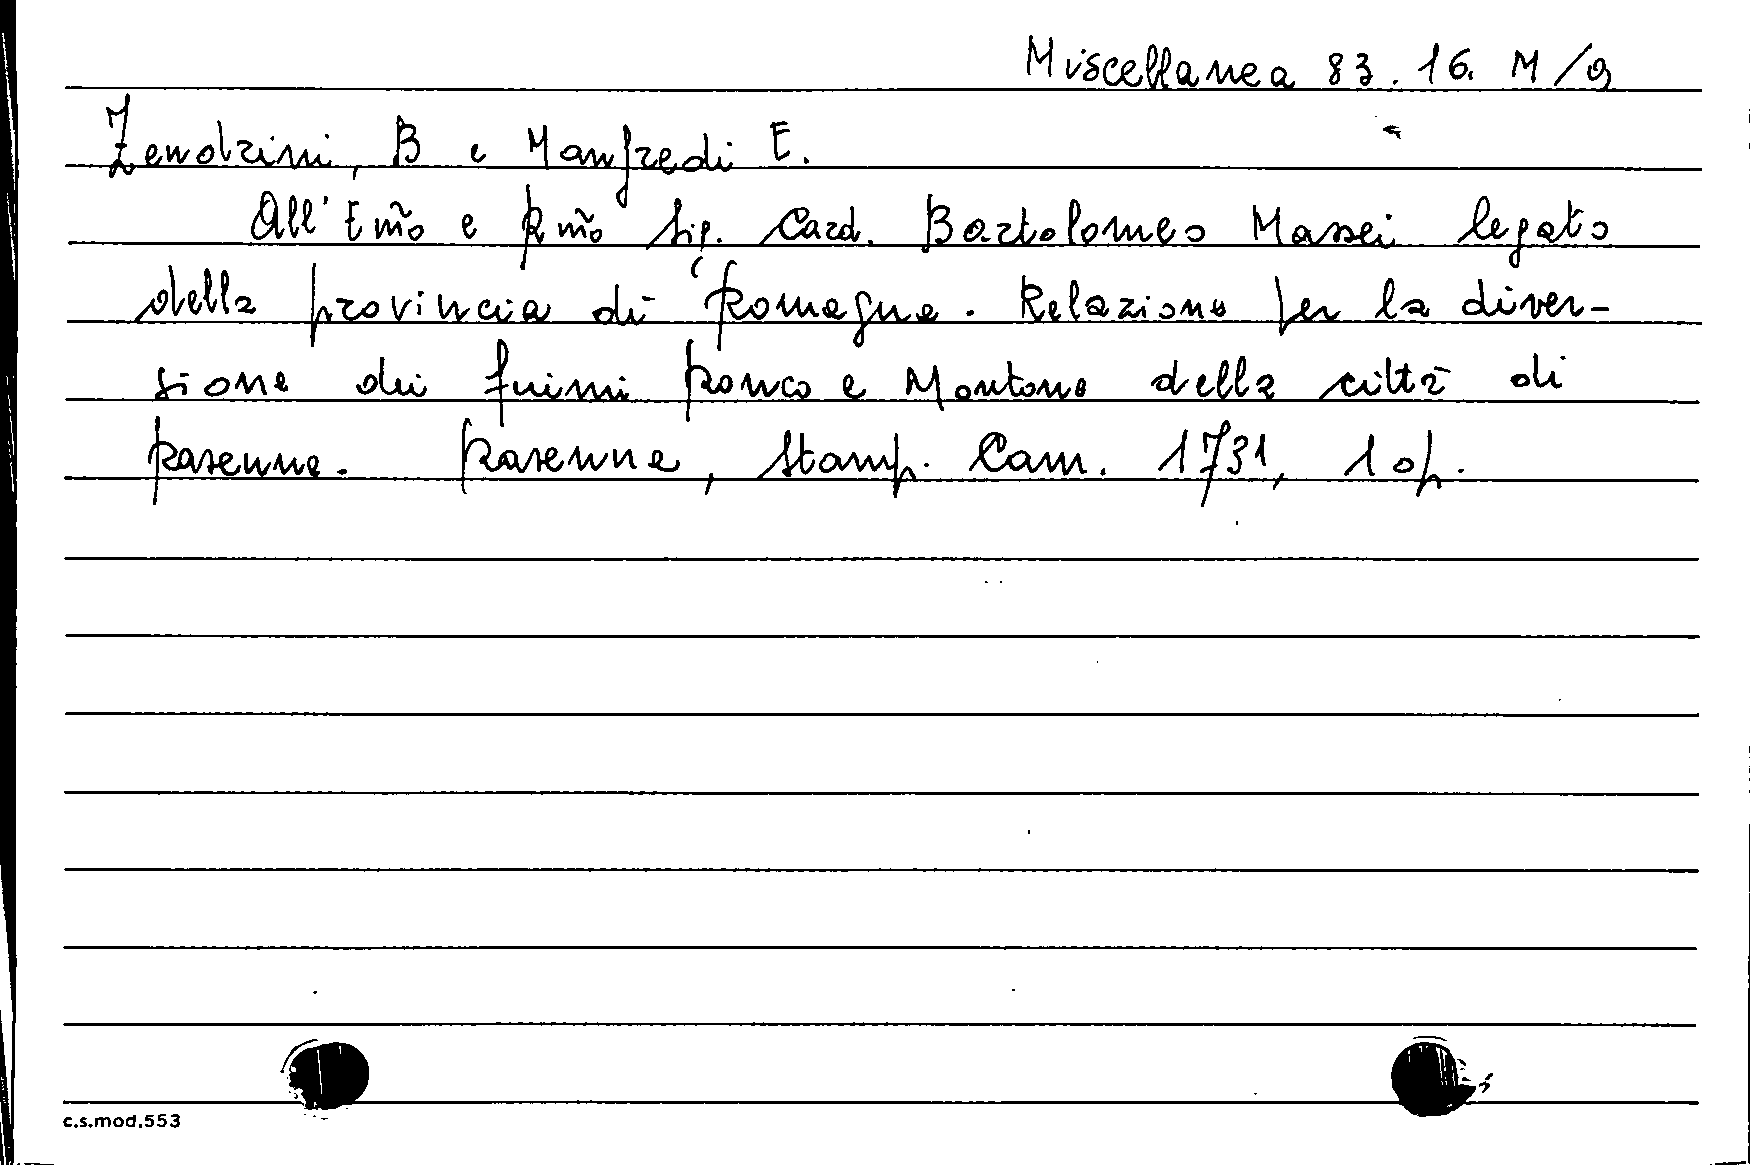 Miscellanea 83.16. M/9
Zendrini, B e Manfredi E.
All'Em̃o e Rm̃o Sig. Card. Bartolomeo Massei legato
della provincia di Romagna. Relazione per la diver-
sione dei fuimi Ronco e Montone della città di
Ravenna. Ravenna, Stamp. Cam. 1731, 1 op.
c.s.mod.553